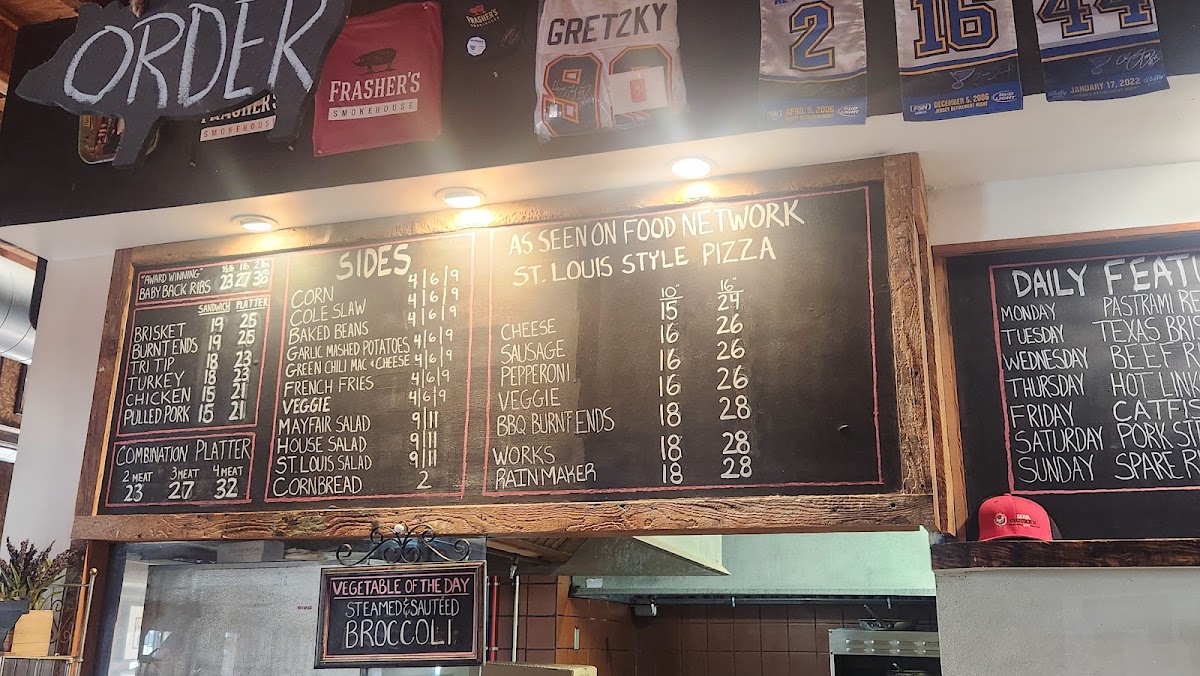 ORDER
FRASHER'S
SMOKEHOUSE
FRASHER'S
SMOKEHOUSE
GRETZKY
99
2
APRIL 9, 2006
16
DECEMBER 5, 2006
JERSEY RETIREMENT NIGHT
44
JANUARY 17, 2022
"AWARD WINNING" ½LB 1LB 2LBS
BABY BACK RIBS 23 27 36
SANDWICH PLATTER
BRISKET 19 25
BURNT ENDS 19 25
TRI TIP 18 23
TURKEY 18 23
CHICKEN 15 21
PULLED PORK 15 21
COMBINATION PLATTER
2 MEAT 3 MEAT 4 MEAT
23 27 32
SIDES
CORN 4|6|9
COLE SLAW 4|6|9
BAKED BEANS 4|6|9
GARLIC MASHED POTATOES 4|6|9
GREEN CHILI MAC & CHEESE 4|6|9
FRENCH FRIES 4|6|9
VEGGIE 4|6|9
MAYFAIR SALAD 9|11
HOUSE SALAD 9|11
ST. LOUIS SALAD 9|11
CORNBREAD 2
AS SEEN ON FOOD NETWORK
ST. LOUIS STYLE PIZZA
10" 16"
CHEESE 15 24
SAUSAGE 16 26
PEPPERONI 16 26
VEGGIE 16 26
BBQ BURNT ENDS 18 28
WORKS 18 28
RAINMAKER 18 28
DAILY FEAT
MONDAY PASTRAMI RE
TUESDAY TEXAS BRIS
WEDNESDAY BEEF R
THURSDAY HOT LINK
FRIDAY CATFIS
SATURDAY PORK ST
SUNDAY SPARE R
VEGETABLE OF THE DAY
STEAMED & SAUTÉED
BROCCOLI